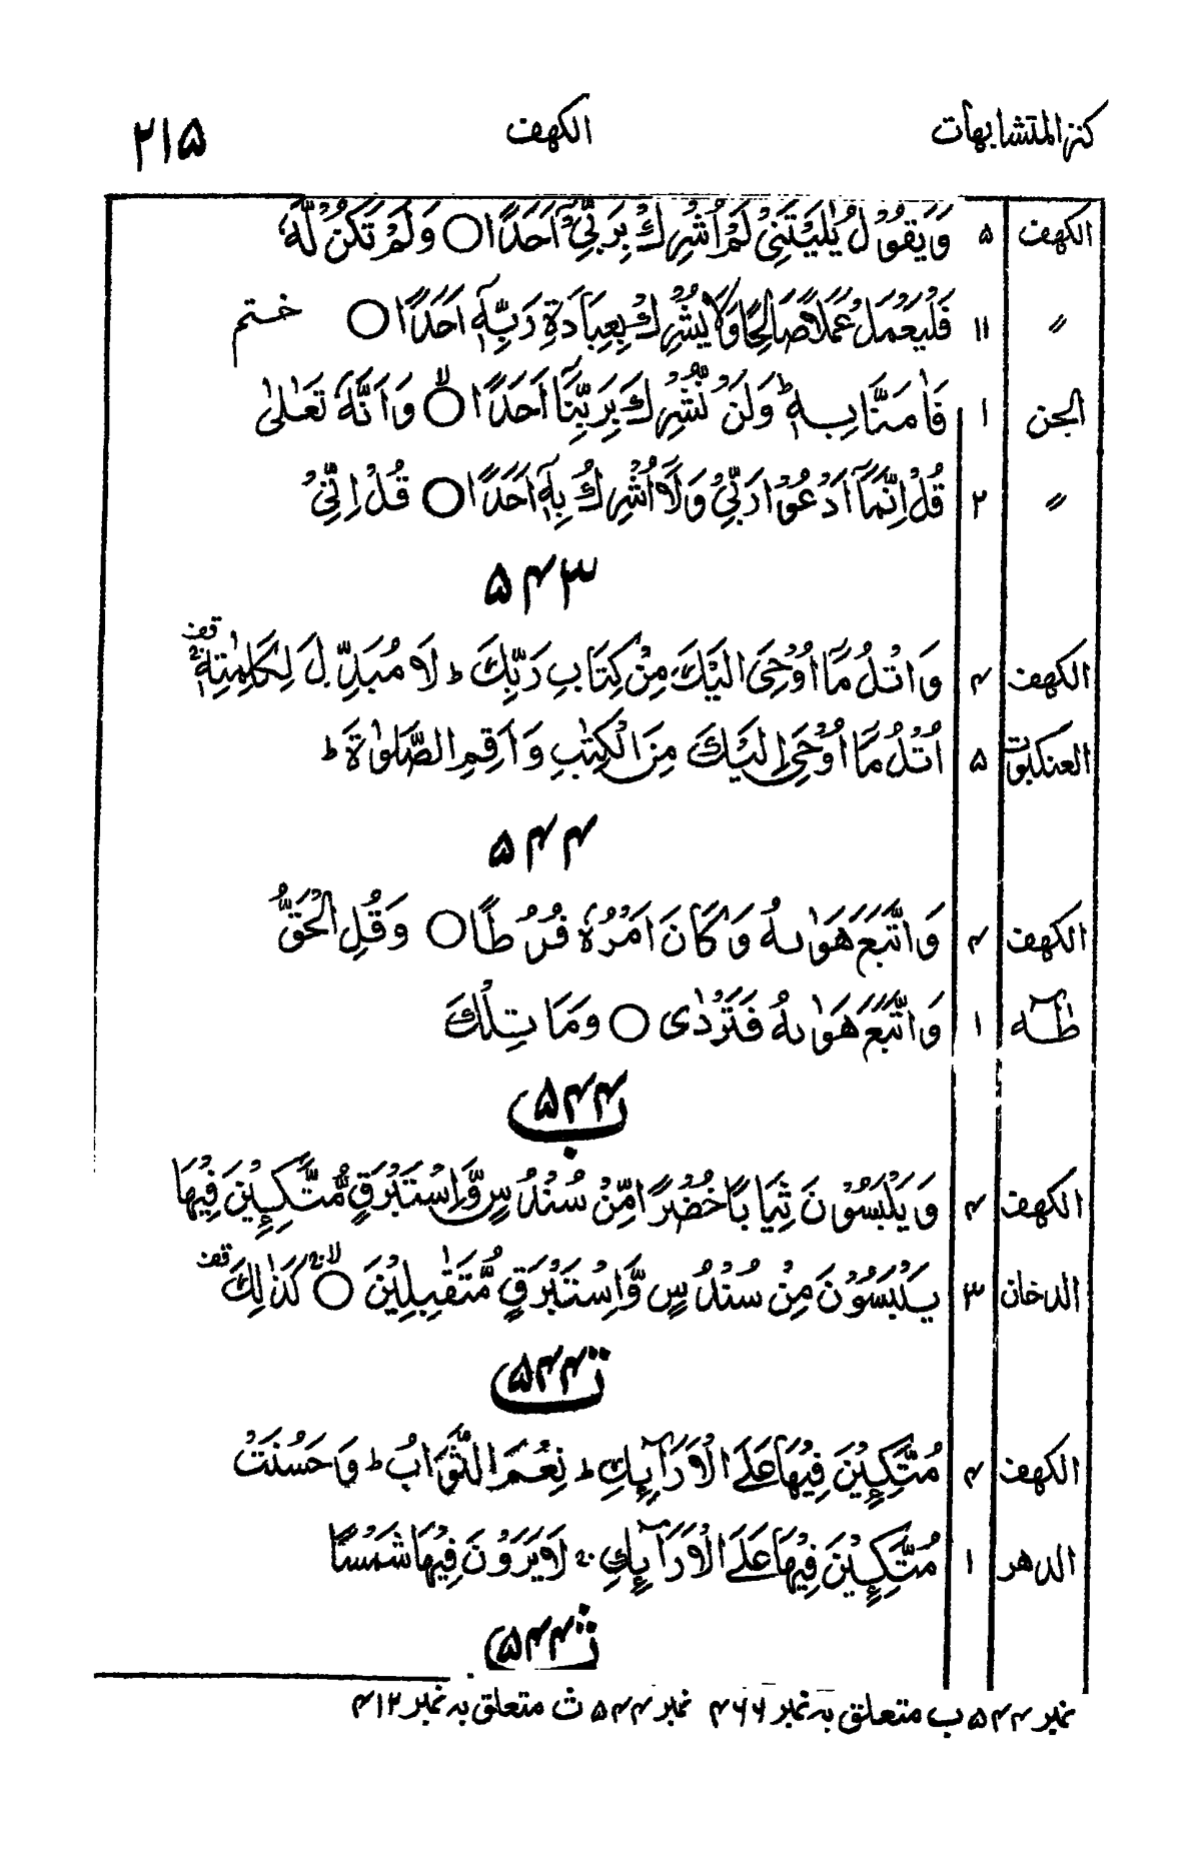 كنز المتشابهات الكهف ٢١٥
الكهف ٥ وَيَقُوْلُ يٰلَيْتَنِيْ لَمْ اُشْرِكْ بِرَبِّيْٓ اَحَدًا ○ وَلَمْ تَكُنْ لَّهٗ
〃 ١١ فَلْيَعْمَلْ عَمَلًا صَالِحًا وَّلَا يُشْرِكْ بِعِبَادَةِ رَبِّهٖٓ اَحَدًا ○ ختم
الجن ١ فَاٰمَنَّا بِهٖ ؕ وَلَنْ نُّشْرِكَ بِرَبِّنَآ اَحَدًا ○ۙ وَاَنَّهٗ تَعٰلٰى
〃 ٢ قُلْ اِنَّمَآ اَدْعُوْا رَبِّيْ وَلَآ اُشْرِكُ بِهٖٓ اَحَدًا ○ قُلْ اِنِّيْ
۵۴۳
الكهف ۴ وَاتْلُ مَآ اُوْحِيَ اِلَيْكَ مِنْ كِتَابِ رَبِّكَ ؕ لَا مُبَدِّلَ لِكَلِمٰتِهٖ قف
العنكبوت ۵ اُتْلُ مَآ اُوْحِيَ اِلَيْكَ مِنَ الْكِتٰبِ وَاَقِمِ الصَّلٰوةَ ؕ
۵۴۴
الكهف ۴ وَاتَّبَعَ هَوٰىهُ وَكَانَ اَمْرُهٗ فُرُطًا ○ وَقُلِ الْحَقُّ
طٰهٰ ١ وَاتَّبَعَ هَوٰىهُ فَتَرْدٰى ○ وَمَا تِلْكَ
۵۴۴ب
الكهف ۴ وَيَلْبَسُوْنَ ثِيَابًا خُضْرًا مِّنْ سُنْدُسٍ وَّاِسْتَبْرَقٍ مُّتَّكِـِٕيْنَ فِيْهَا
الدخان ٣ يَلْبَسُوْنَ مِنْ سُنْدُسٍ وَّاِسْتَبْرَقٍ مُّتَقٰبِلِيْنَ ○ۙ كَذٰلِكَ قف
۵۴۴ت
الكهف ۴ مُتَّكِـِٕيْنَ فِيْهَا عَلَى الْاَرَآئِكِ ؕ نِعْمَ الثَّوَابُ ؕ وَحَسُنَتْ
الدهر ١ مُتَّكِـِٕيْنَ فِيْهَا عَلَى الْاَرَآئِكِ ۚ لَا يَرَوْنَ فِيْهَا شَمْسًا
۵۴۴ث
نمبر ۵۴۴ب متعلق بہ نمبر ۴۶۶ نمبر ۵۴۴ث متعلق بہ نمبر ۴۱۲